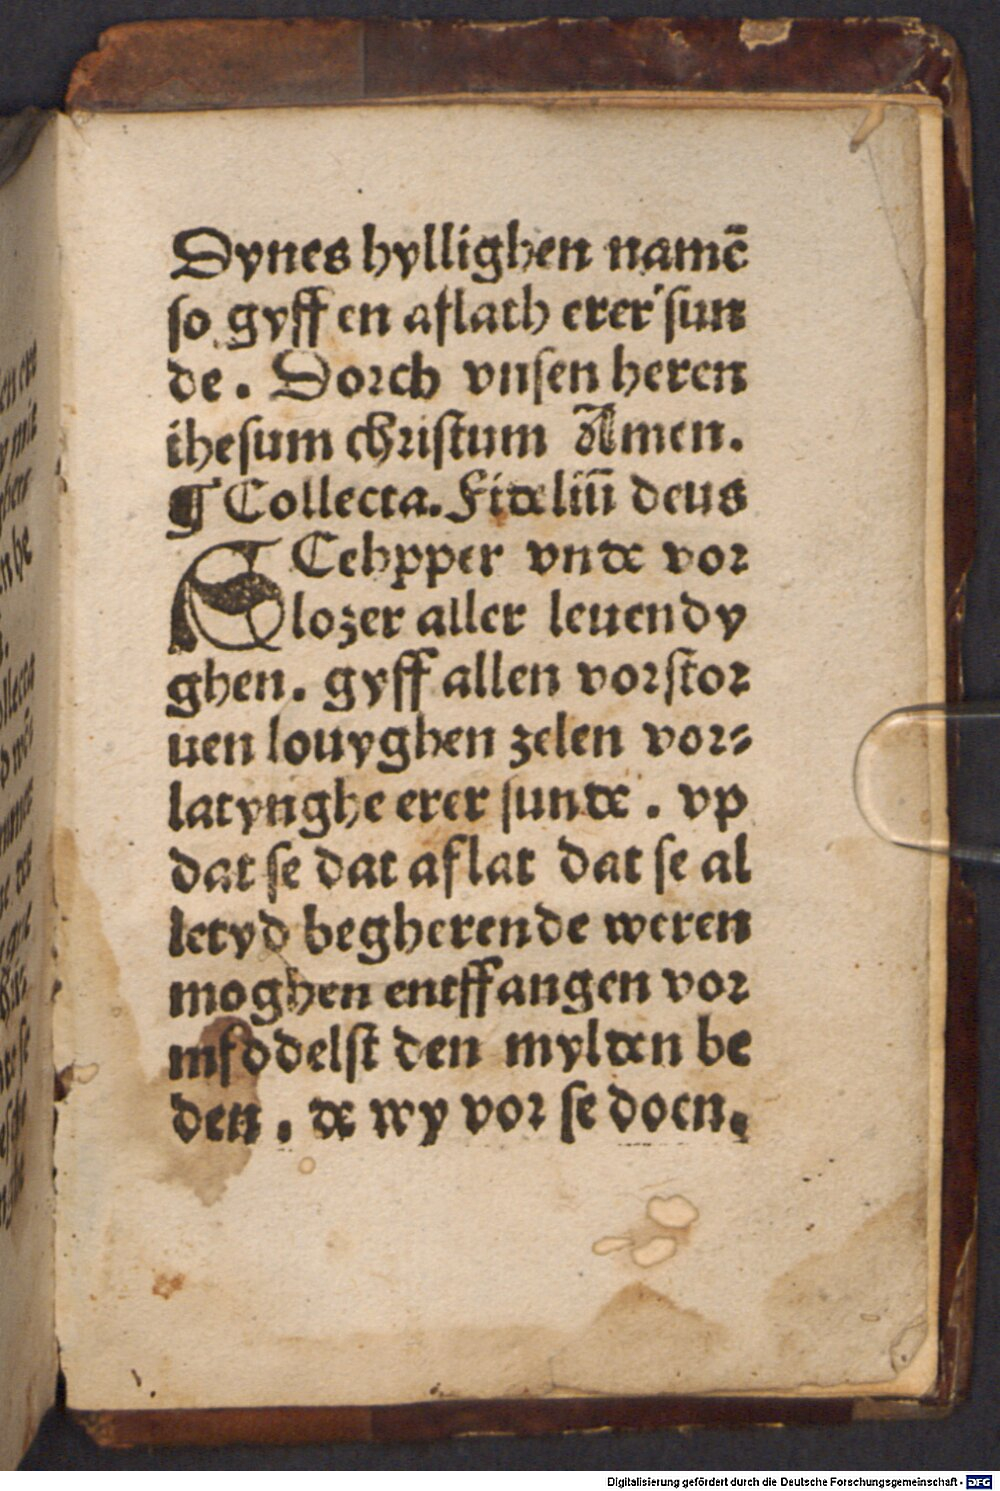 Dynes hyllighen namē
so gyff en aflath erer sun
de. Dorch vnsen heren
ihesum christum Amen.
¶ Collecta. Fideliū deus
SCehpper vnde vor
lozer aller leuendy
ghen. gyff allen vorstor
uen louyghen zelen vor⸗
latynghe erer sunde. vp
dat se dat aflat dat se al
letyd begherende weren
moghen entffangen vor
middelst den mylden be
den. de wy vor se doen.
Digitalisierung gefördert durch die Deutsche Forschungsgemeinschaft - DFG